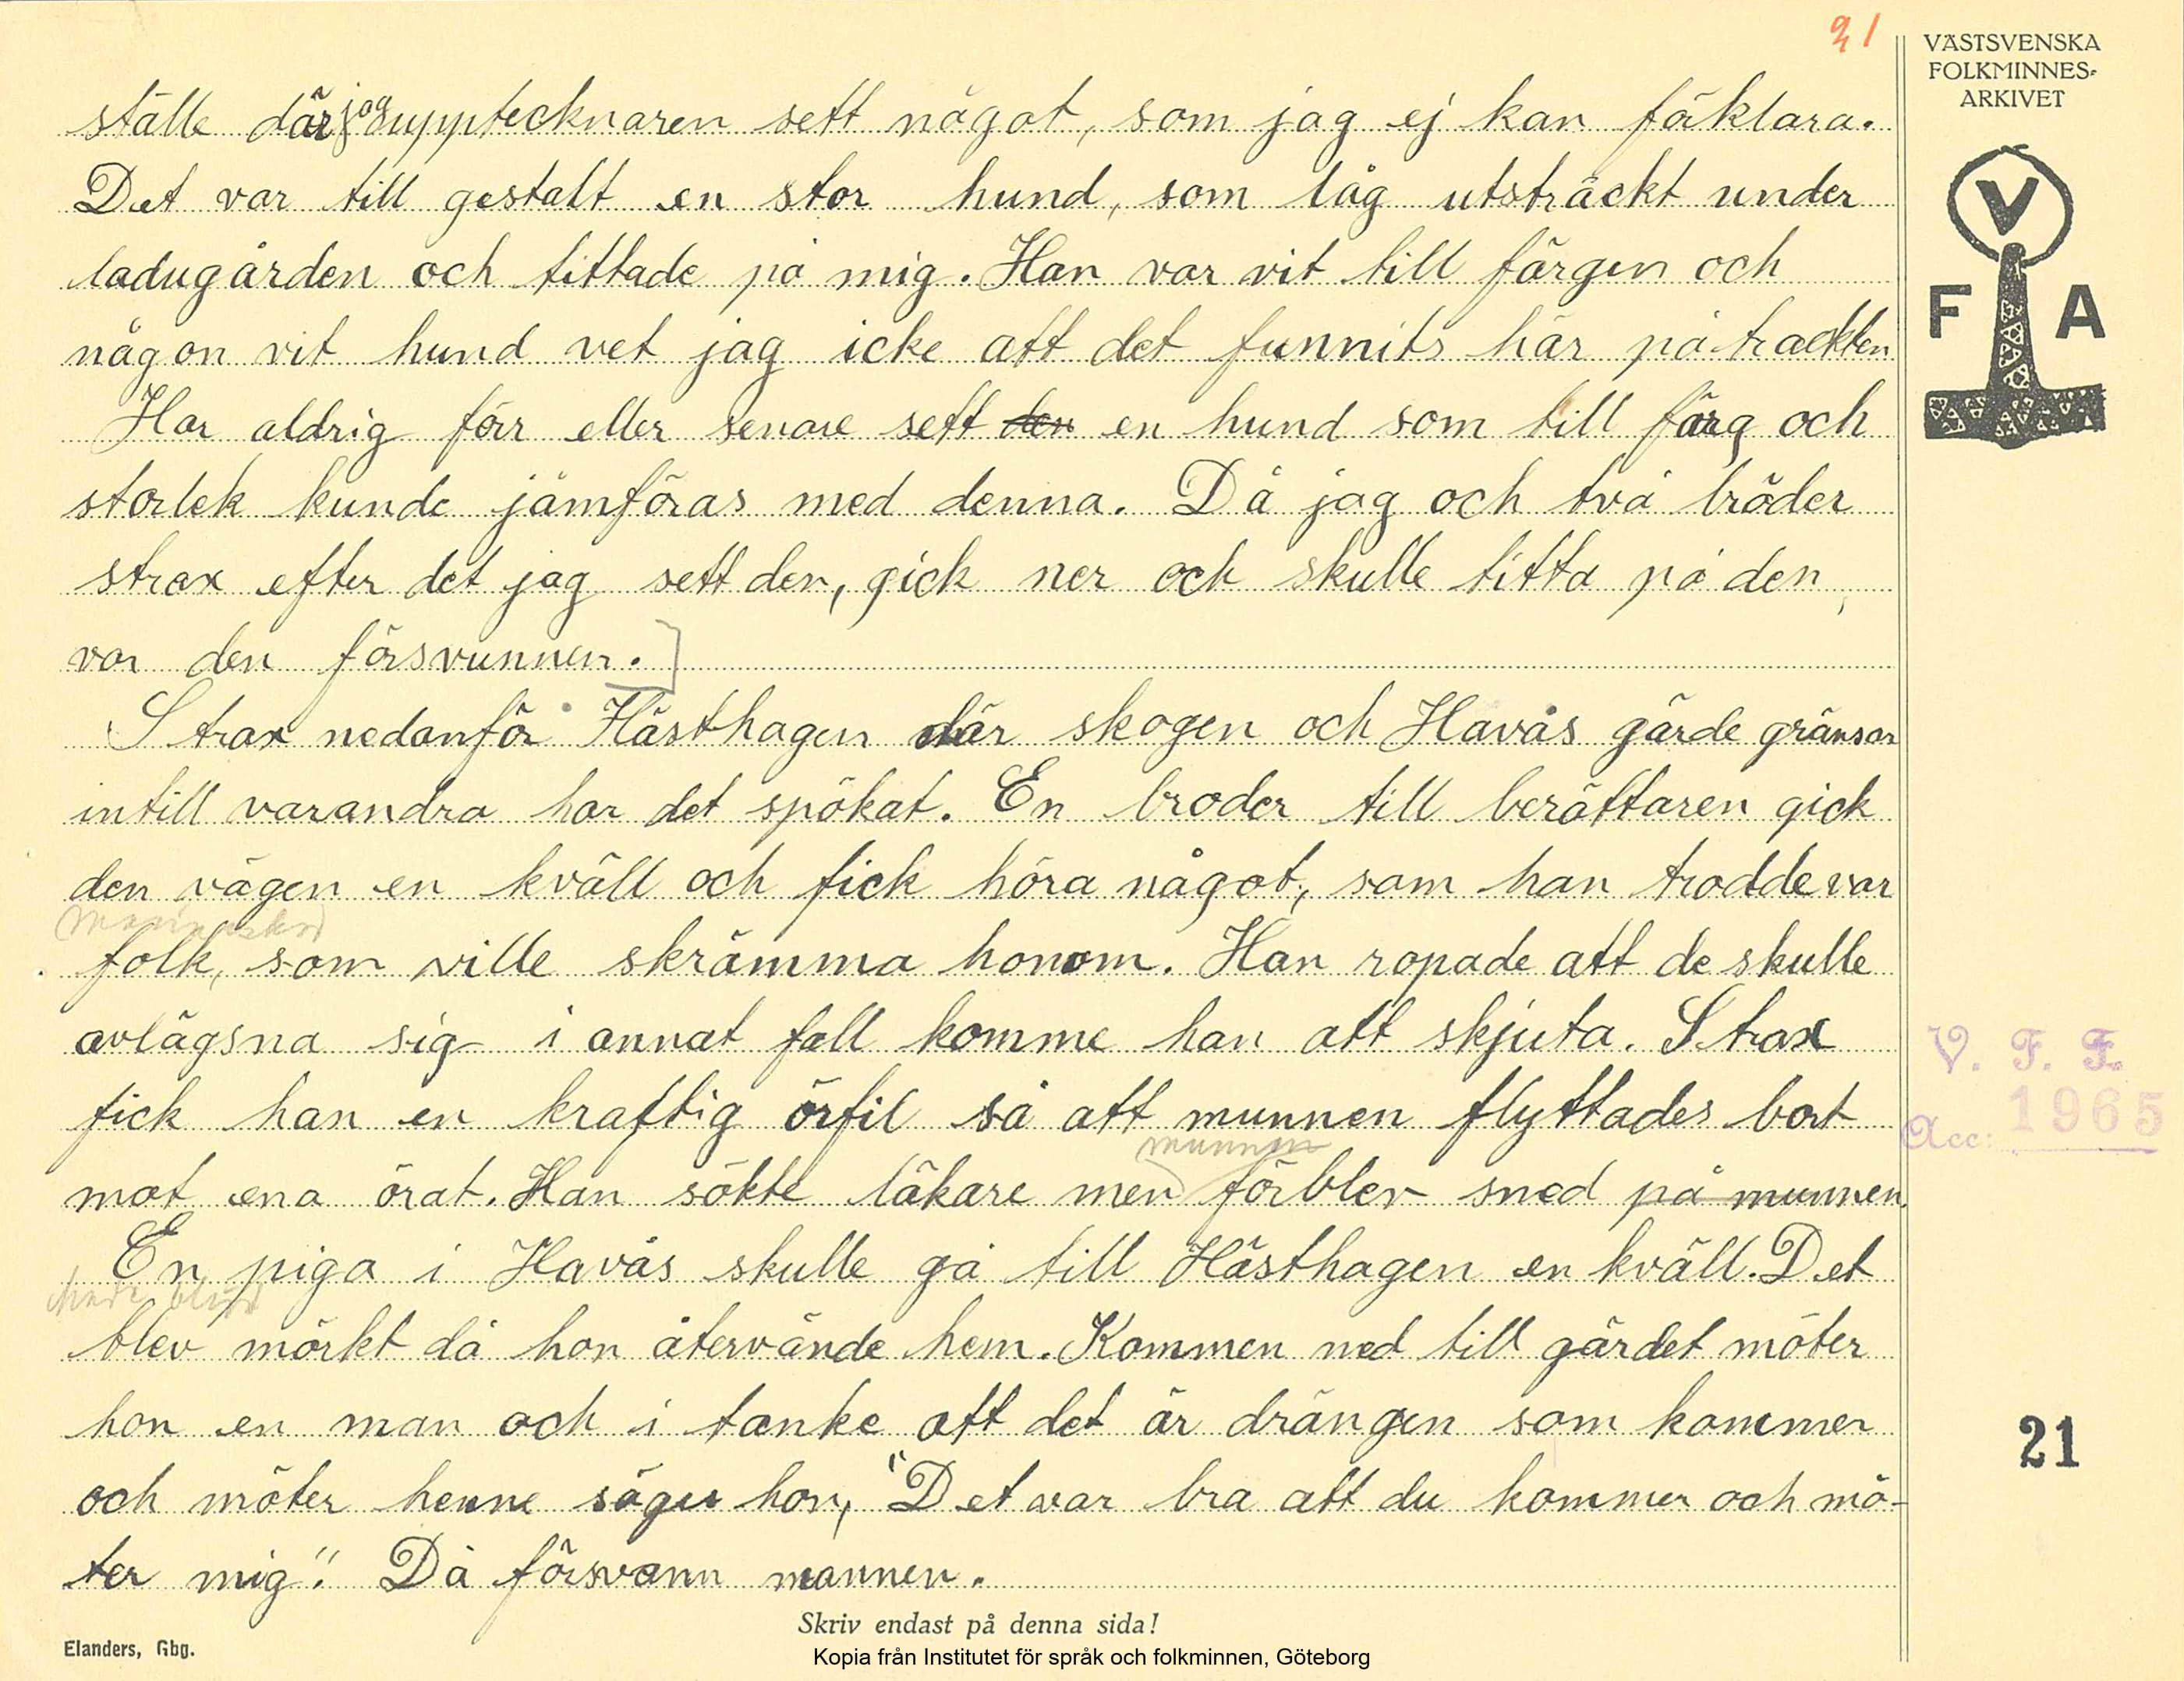 21
VÄSTSVENSKA
FOLKMINNES-
ARKIVET
V
F A
ställe där jag upptecknaren sett något, som jag ej kan föklara.
Det var till gestalt en stor hund, som låg utsträckt under
ladugården och tittade på mig. Han var vit till färgen och
någon vit hund vet jag icke att det funnits här på trackten
Har aldrig förr eller senare sett den en hund som till färg och
storlek kunde jämföras med denna. Då jag och två bröder
strax efter det jag sett den, gick ner och skulle titta på den,
var den försvunnen.]
Strax nedanför Hästhagen där skogen och Havås gärde gränsar
intill varandra har det spökat. En broder till berättaren gick
den vägen en kväll och fick höra något, som han trodde var
(människor)
folk, som ville skrämma honom. Han ropade att de skulle
avlägsna sig i annat fall komme han att skjuta. Strax
fick han en kraftig örfil så att munnen flyttades bort
munnen
mot ena örat. Han sökte läkare men förblev sned på munnen.
En piga i Havås skulle gå till Hästhagen en kväll. Det
blev mörkt då hon återvände hem. Kommen ned till gärdet möter
hon en man och i tanke att det är drängen som kommer
och möter henne säger hon, "Det var bra att du kommer och mö-
ter mig". Då försvann mannen.
V. F. F.
Acc: 1965
21
Skriv endast på denna sida!
Elanders, Gbg.
Kopia från Institutet för språk och folkminnen, Göteborg